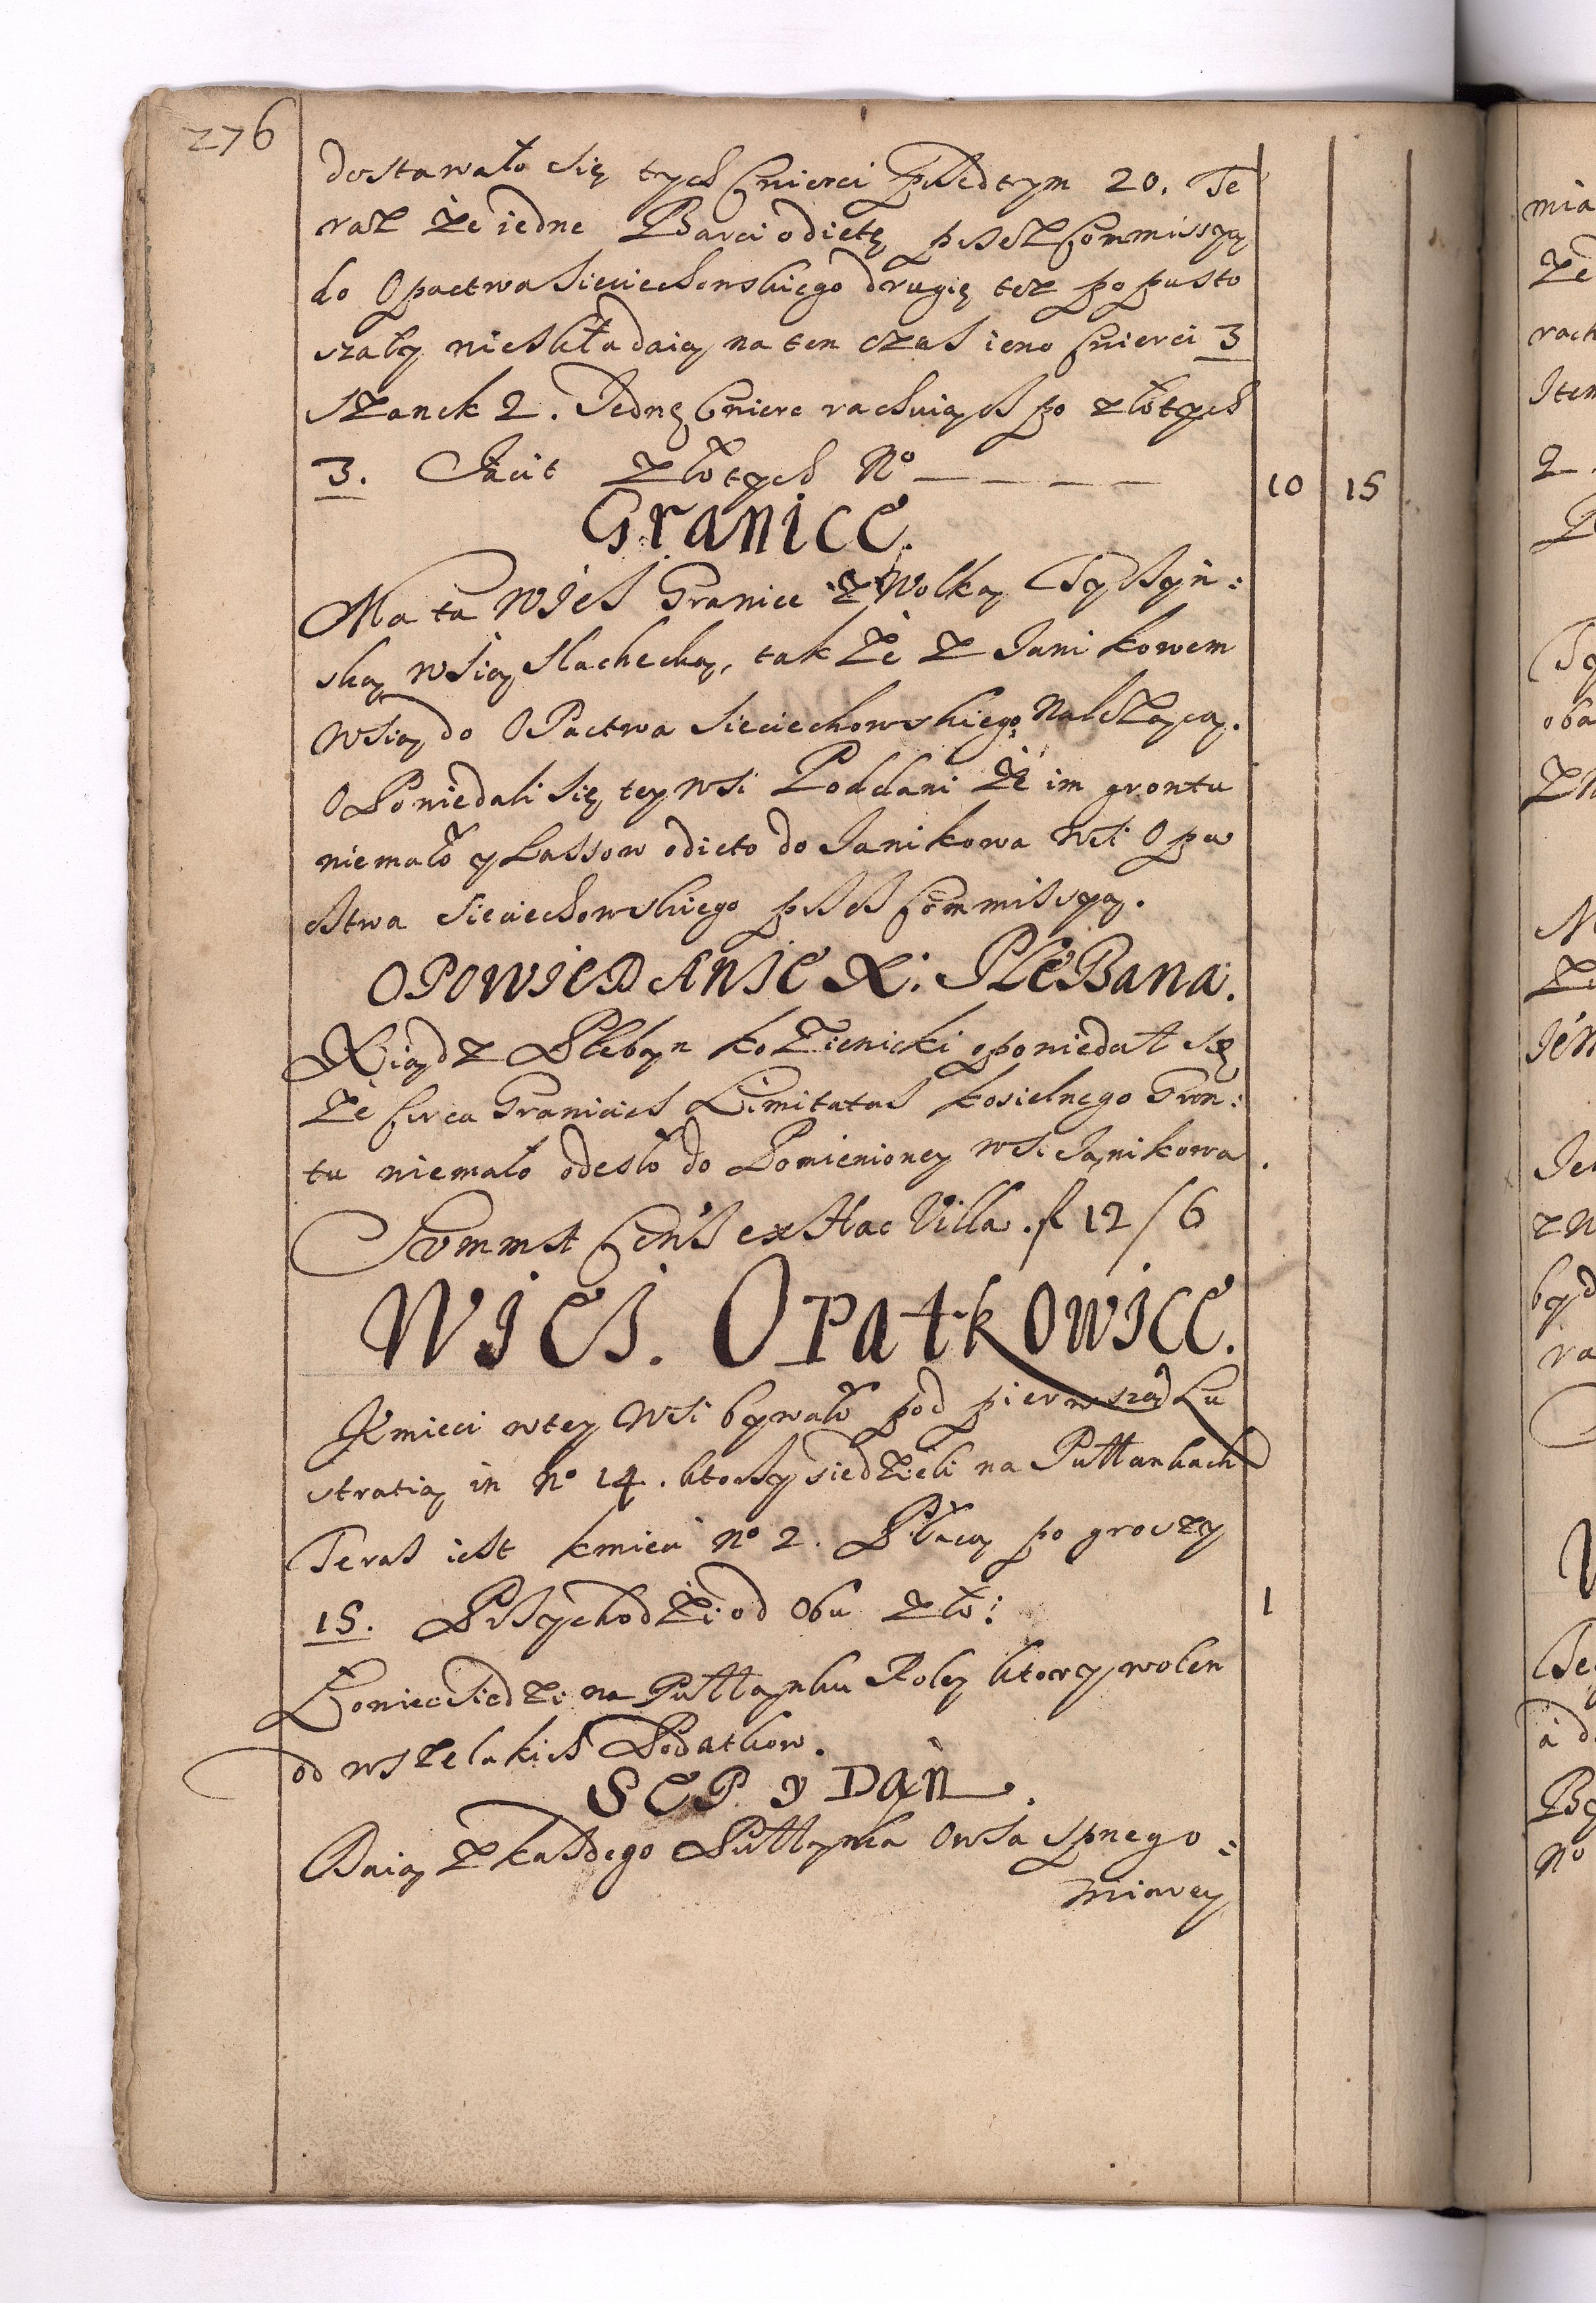 276
dostawało się tych cwierci przedtym 20. Te
raz że iedne Barci odietę przez Commissyą
do Opactwa Sieciechowskiego drugię tez popusto
szały nieskładaią na ten czas ieno cwierci 3
szanek 2. Jednę cwierc rachuiąch po złotych
3. Facit złotych No _ _ _ _ 10 15
Granice.
Ma ta WJes Granice z Wolką Tyrzyn:
ską wsią slachecką, tak że z Janikowem
wsią do OPactwa Sieciechowskiego Należącą.
OPowiedali się tey wsi Poddani że im grontu
niemało y Lassow odieto do Janikowa wsi Opa
ctwa Sieciechowskiego przes Commissyą.
OPOWJEDANJE X: PLEBana.
Xiądz Plebąn koźienicki opowiedał sę
że circa Granicies Limitatas kosielnego Gron:
tu niemało odesło do Pomienioney wsi Jąnikowa.
Summa Cens ex Hac Villa. f 12/6
WJES. OPatkOWJCE.
Kmieci wtey Wsi bywało pod pierwszą Lu
stratią in No 14. ktorzy siedzieli na Pułłankach
Teras iest kmieci No 2. Płacą po groszy
15. Przychodźi od obu zło: 1
Łowiec siedźi na Pułłąnku Roley ktory wolen
od wszelakich Podatkow.
SEP y Dań.
Daią z każdego Pułłąnka Owsa spnego:
miarey